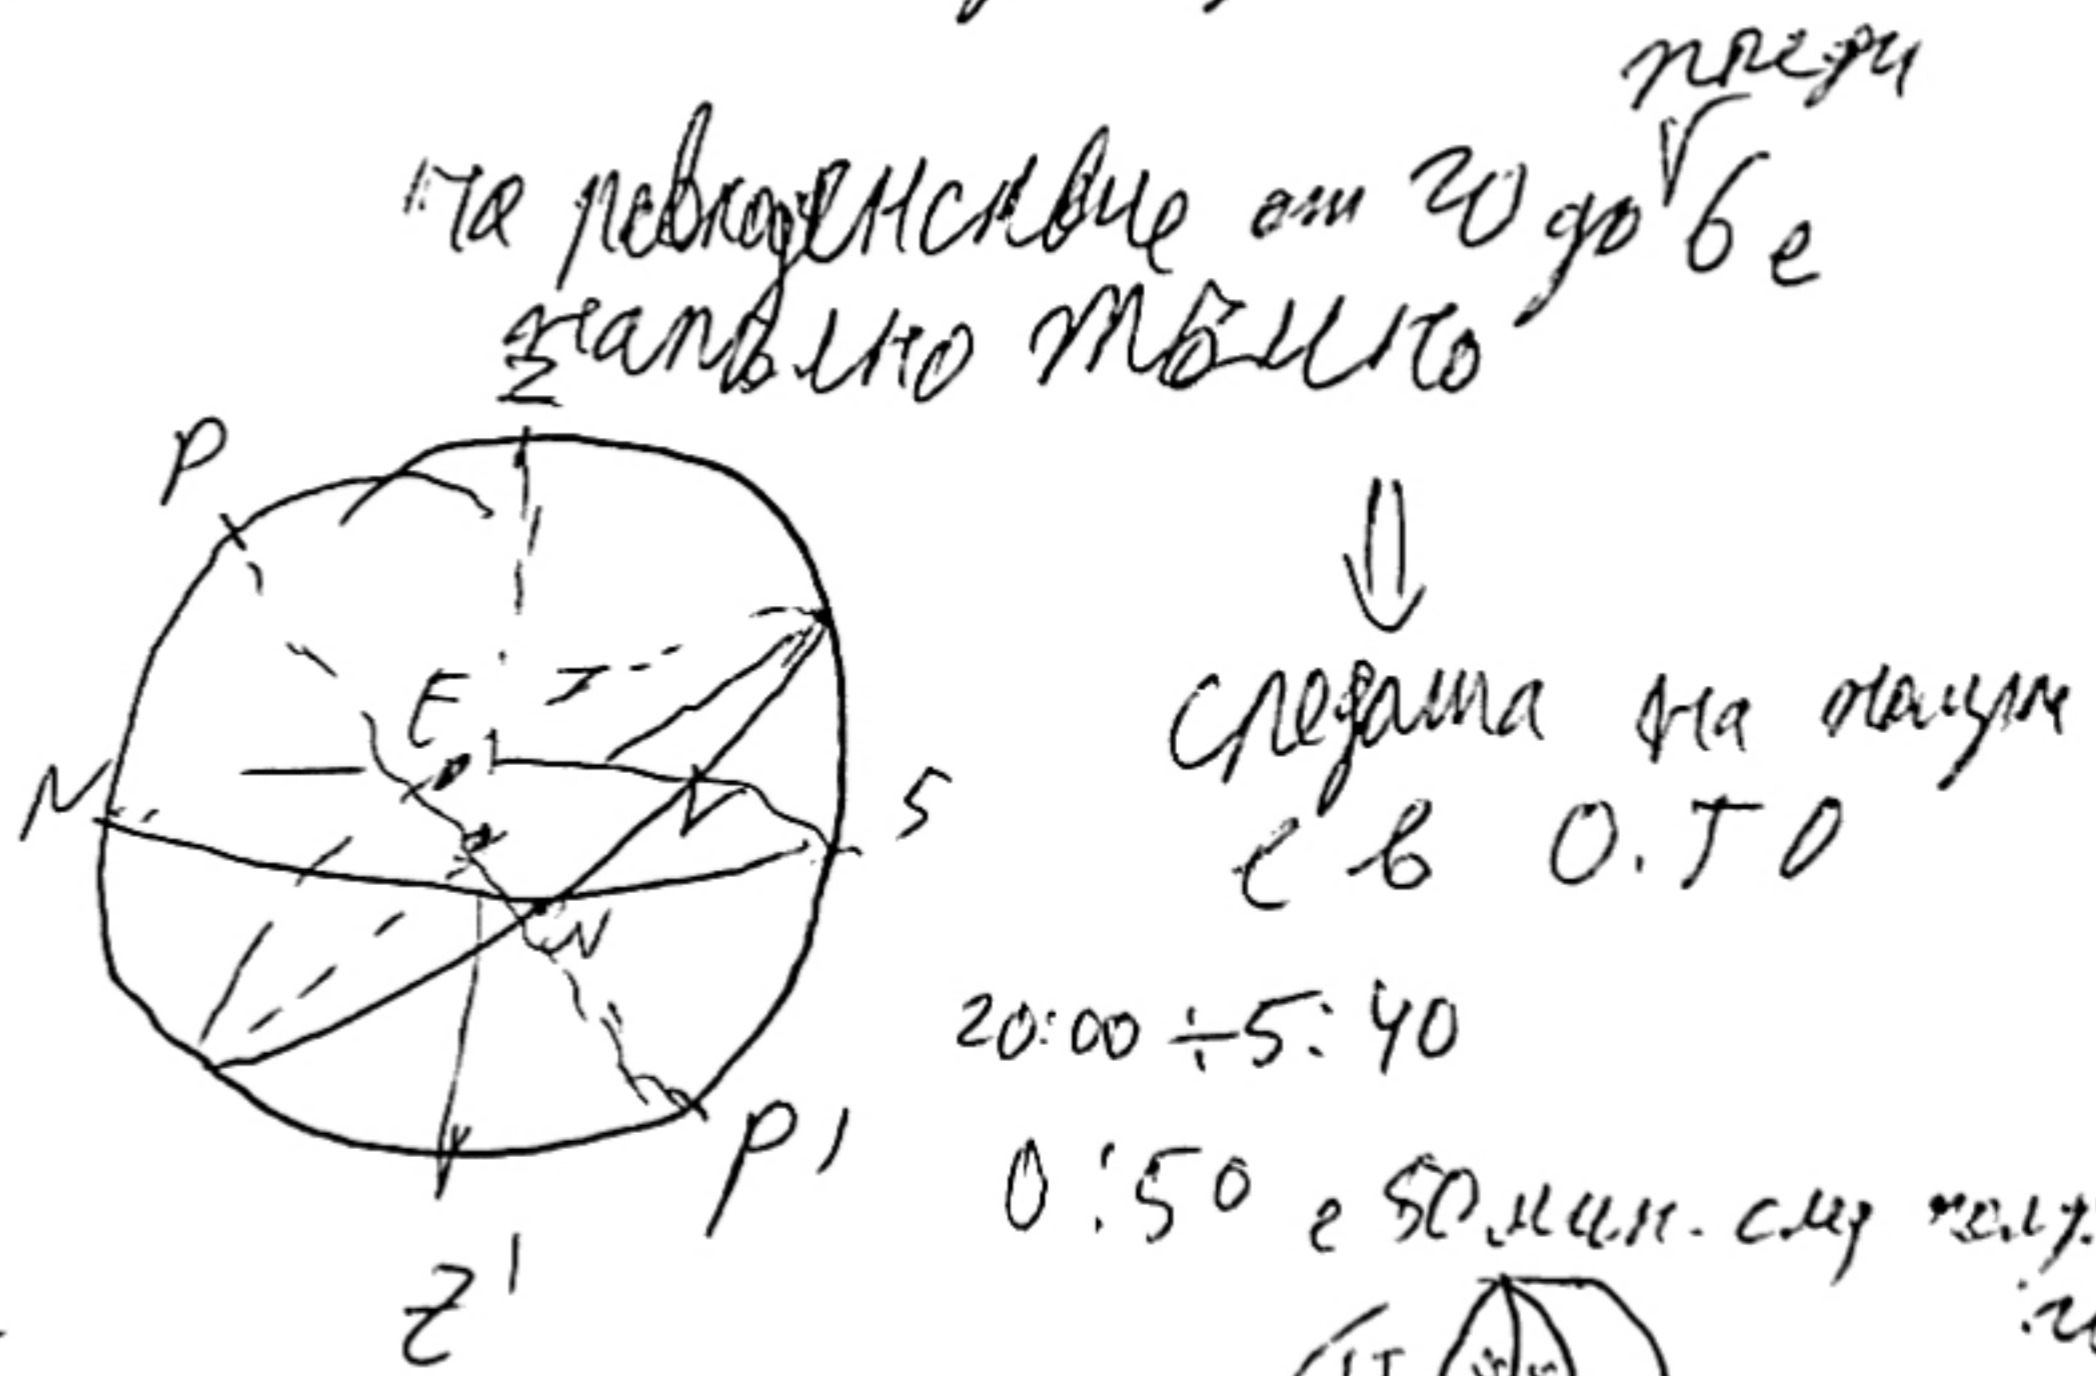 преди
на равноденствие от 20 до 6 е
напълно тъмно
Z
P
E
N
S
W
P'
Z'
средата на нощта
е в 0.50
20:00 ÷ 5:40
0:50 е 50 мин. след